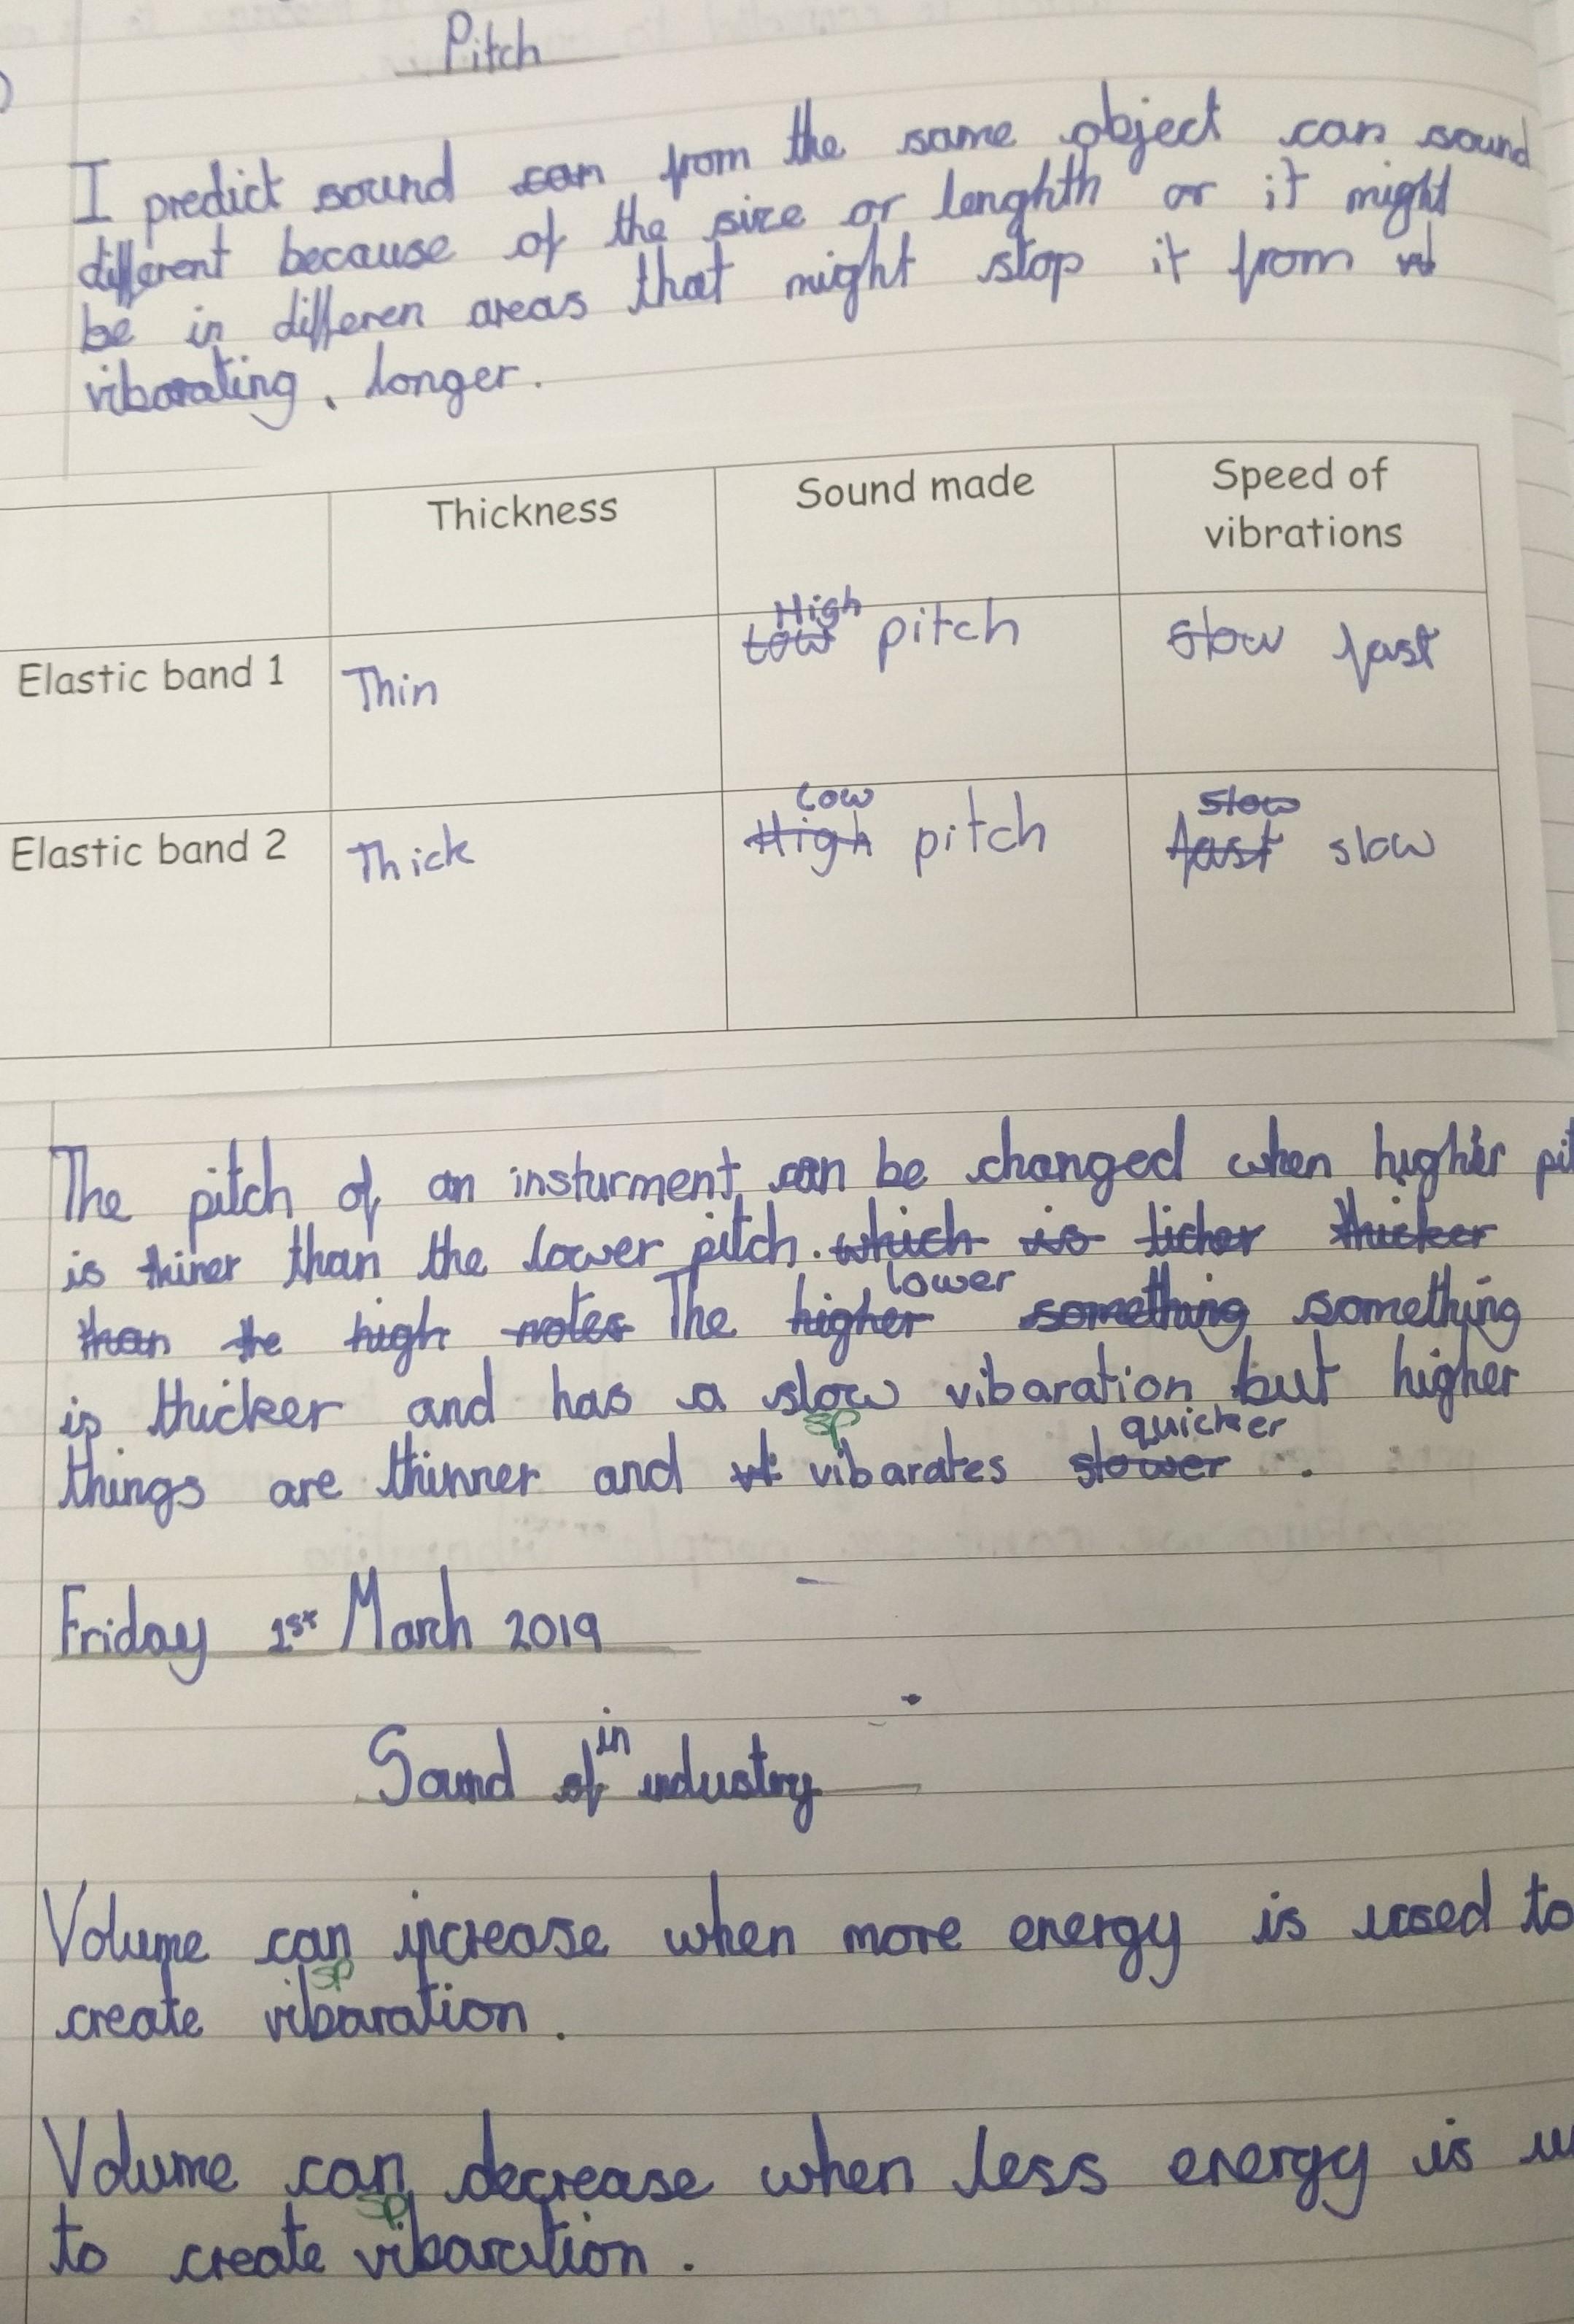 Pitch
I predict sound can from the same object can sound
different because of the size or lenghth or it might
be in differen areas that might stop it from
viborating, longer.
Thickness Sound made Speed of
vibrations
High
Low pitch slow fast
Elastic band 1 Thin
Low slow
Elastic band 2 Thick High pitch fast slow
The pitch of an insturment can be changed when higher pit
is thiner than the lower pitch. which is ticher thicker
lower
than the high notes The higher something something
is thicker and has a slow vibaration but higher
sp quicker
things are thinner and vibarates slower .
Friday 1st March 2019
in
Sound of industry
Volume can increase when more energy is used to
sp
create vibaration.
Volume can decrease when less energy is u
sp
to create vibaration.